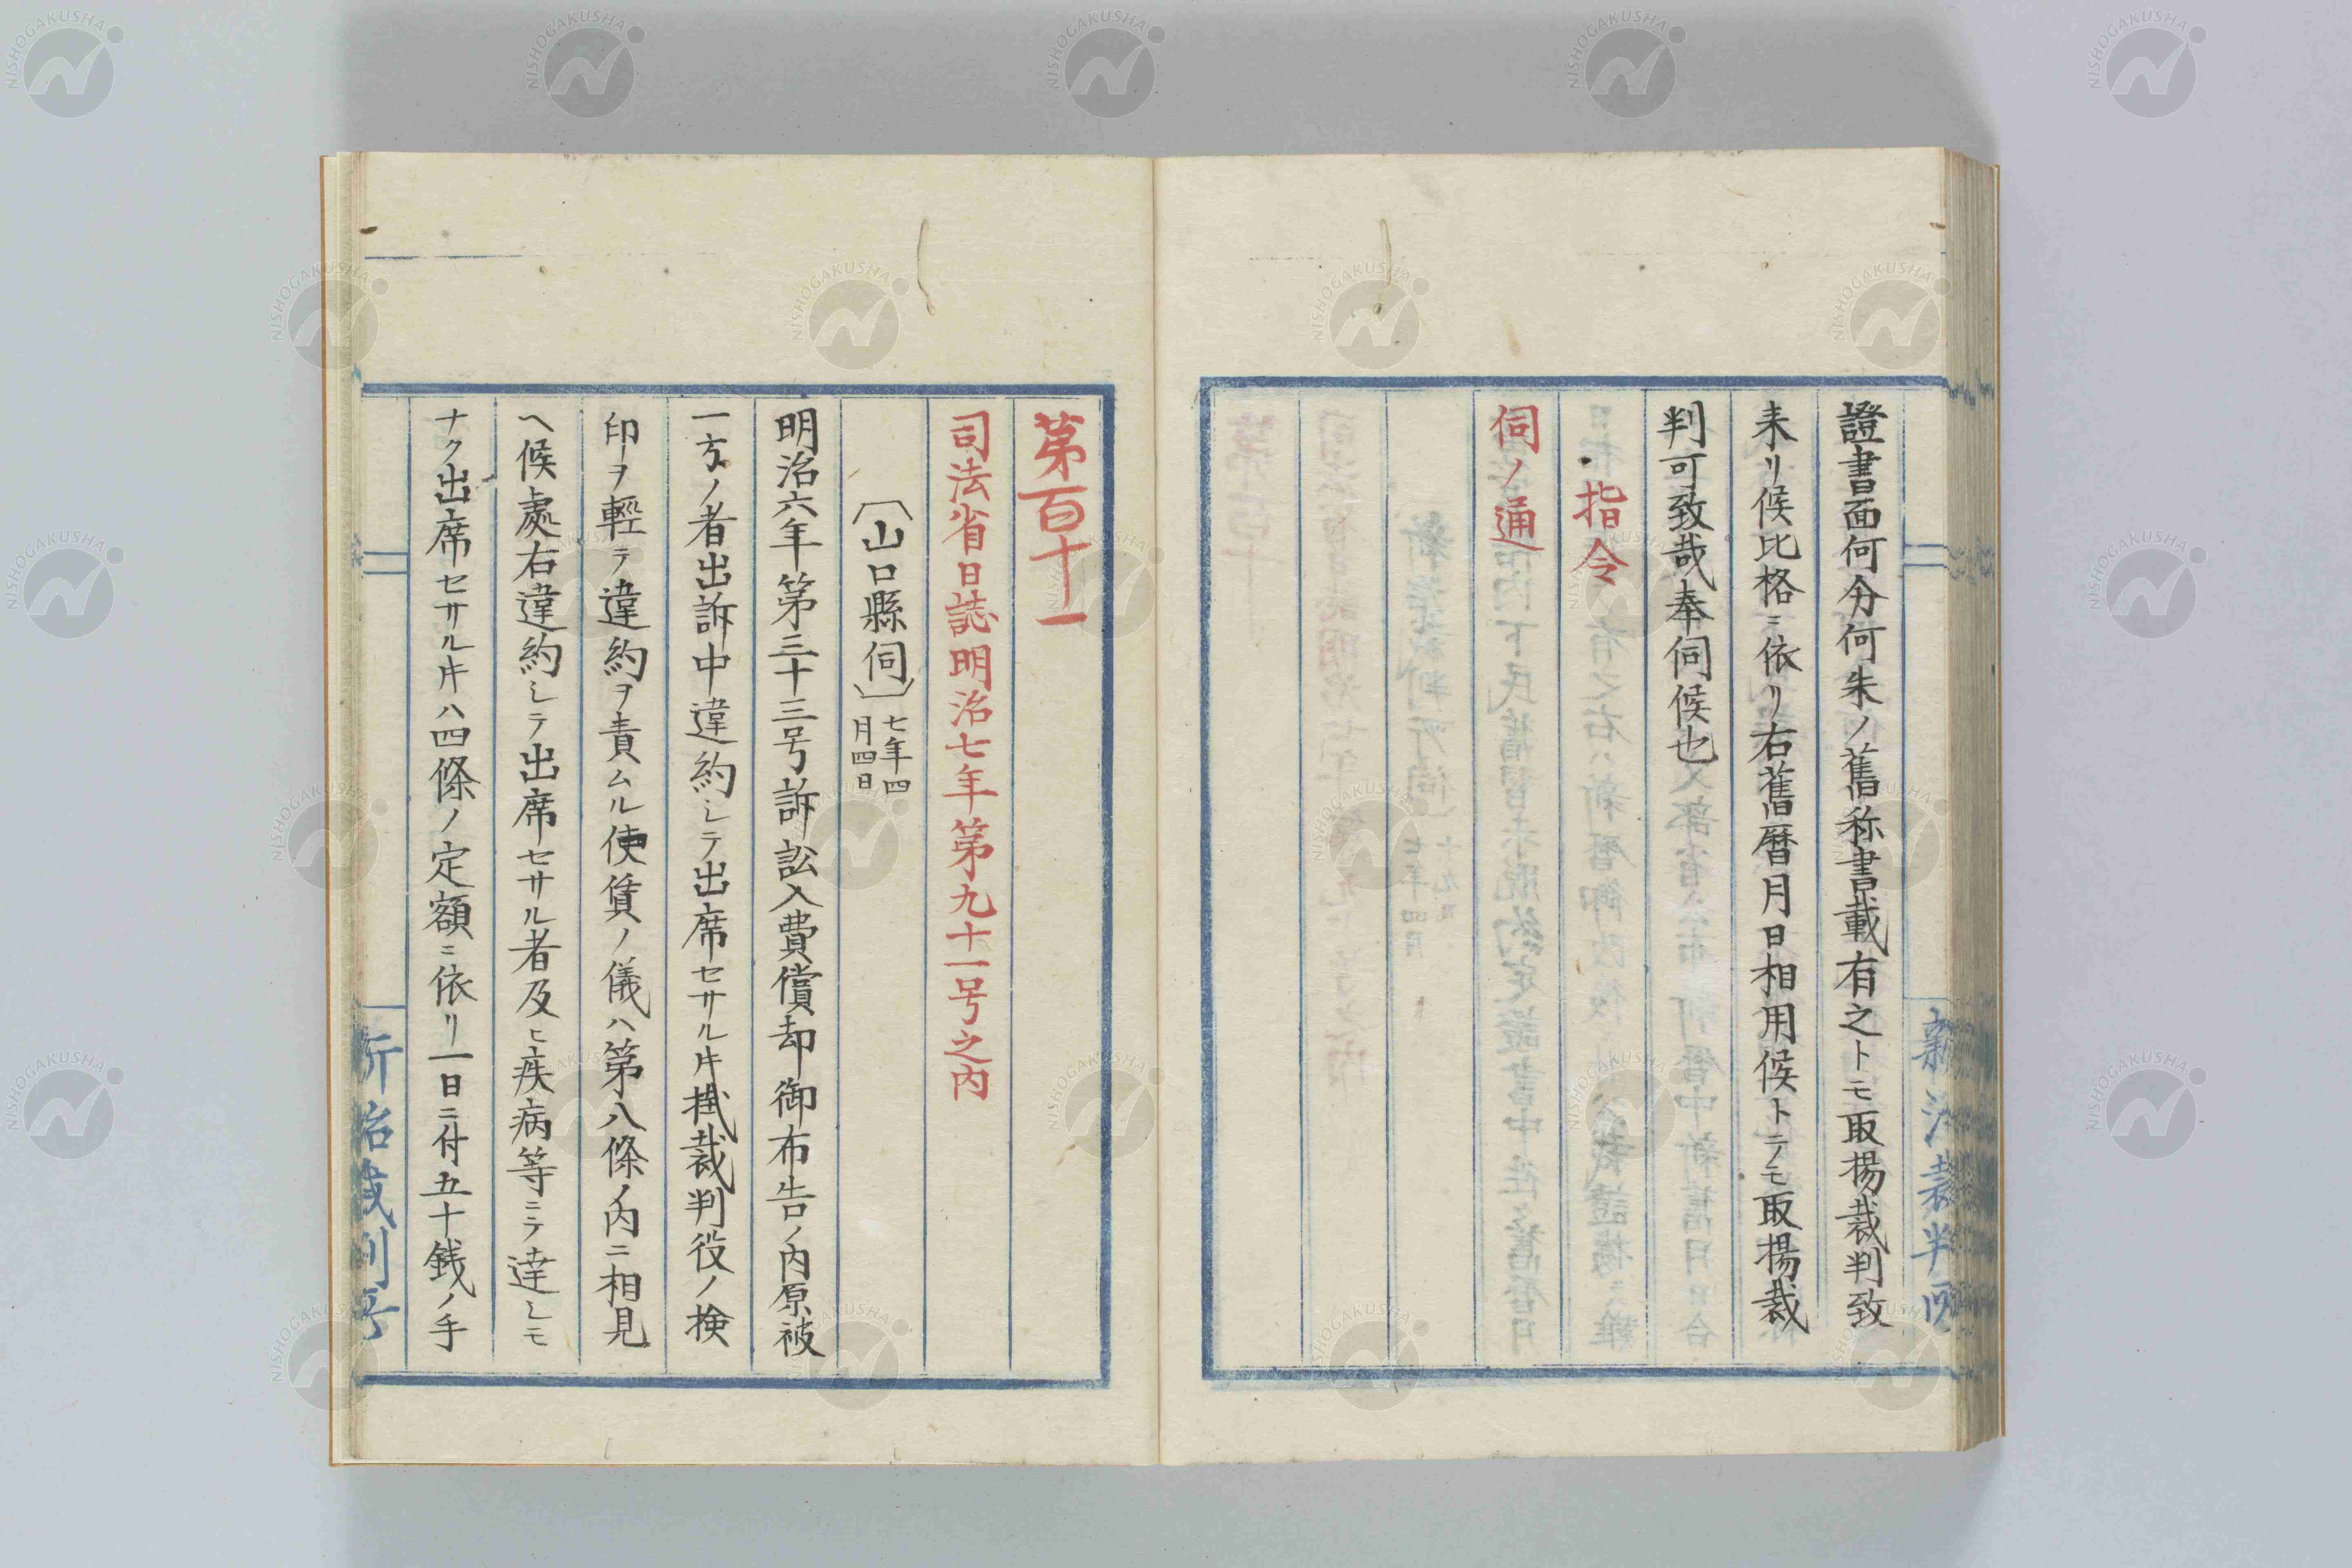 證書面何分何朱ノ舊称書載有之トモ取揚裁判致
来リ候比格ニ依リ右舊暦月日相用候トテモ取揚裁
判可致哉奉伺候也
指令
伺ノ通
第百十一
司法省日誌明治七年第九十一号之内
〔山口縣伺〕七年四
月四日
明治六年第三十三号訴訟入費償却御布告ノ内原被
一方ノ者出訴中違約シテ出席セサル片掛裁判役ノ検
印ヲ輕テ違約ヲ責ムル使賃ノ儀ハ第八條ノ内ニ相見
ヘ候處右違約シテ出席セサル者及ヒ疾病等ニテ達シモ
ナク出席セサル片ハ四條ノ定額ニ依リ一日ニ付五十銭ノ手
NISHOGAKUSHA